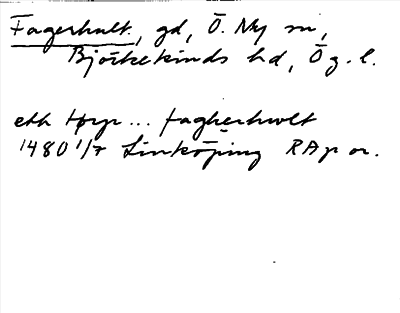 Fagerhult, gd, Ö. Ny sn,
Björkekinds hd, Ög. l.
eth torp... fagherhvlt
1480 1/7 Linköping RAp or.